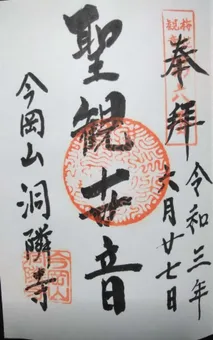 奉拝
令和三年
六月廿七日
聖観世音
今岡山
洞隣寺
今岡山